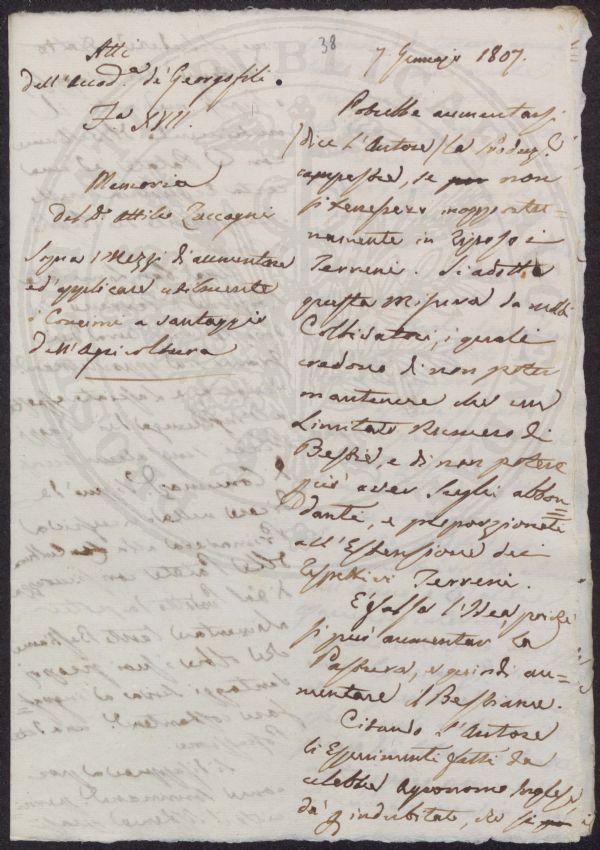 38
Atti
dell'Accad.a de' Georgofili.
7 Gennajo 1807.
Memoria
del Dr Attilio Zuccagni
sopra i Mezzi di aumentare
ed applicare utilmente
i Concimi a vantaggio
dell'Agricoltura
Potrebbe aumentarsi
(dice l'Autore) la
campestre, se non
si tenessero inopportu=
namente in Riposo i
Terreni. Si adotta
questa Misura da molti
Coltivatori, i quali
credono di non poter
mantenere che un
Limitato Numero di
Bestie, e di non potere
più aver Sughi abbon=
danti, e proporzionati
all'Estensione dei
respettivi Terreni.
È falsa l'Idea poiché
si può aumentar la
Pastura, e quindi au=
mentare il Bestiame.
Citando l'Autore
li Esperimenti fatti da
celebre Agronomo Inglese
dà p indubitato, che si